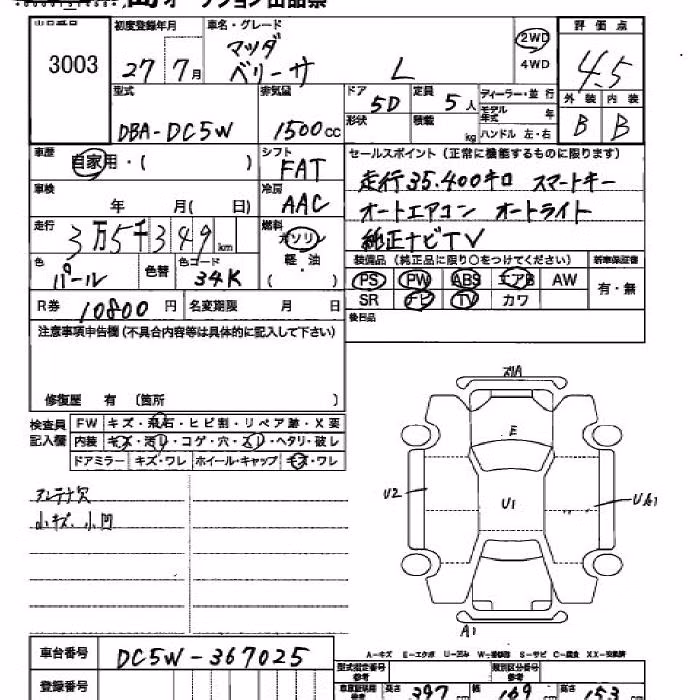 オークション出品票
出品番号 初度登録年月 車名・グレード 評価点
3003 27 7月 マツダ ベリーサ L 2WD 4WD 4.5
型式 排気量 ドア 5D 定員 5人 ディーラー・並行 外装 内装
DBA-DC5W 1500cc 形状 積載 kg モデル年式 年 B B
ハンドル 左・右
車歴 自家用・( ) シフト FAT セールスポイント (正常に機能するものに限ります)
車検 年 月( 日) 冷房 AAC 走行35.400キロ スマートキー
走行 3万5千349km 燃料 ガソリン 軽・油 ( ) オートエアコン オートライト
純正ナビTV
色 パール 色替 色コード 34K 装備品 (純正品に限り○をつけてください) 新車保証書
PS PW ABS エアB AW 有・無
SR ナビ TV カワ
R券 10800円 名変期限 月 日 後日品
注意事項申告欄 (不具合内容等は具体的に記入して下さい)
修復歴 有 (箇所 )
検査員記入欄 FW キズ・飛石・ヒビ割・リペア跡・X要
内装 キズ・汚レ・コゲ・穴・スレ・ヘタリ・破レ
ドアミラー キズ・ワレ ホイール・キャップ キズ・ワレ
アンテナ欠
小キズ、小凹
ズレA
E
U2 U1 UA1
A1
車台番号 DC5W-367025
A-キズ E-エクボ U-凹み W-補修跡 S-サビ C-腐食 XX-交換済
登録番号 型式指定番号 参考 類別区分番号 参考
車庫証明用 参考 長さ 397cm 幅 169cm 高さ 153cm